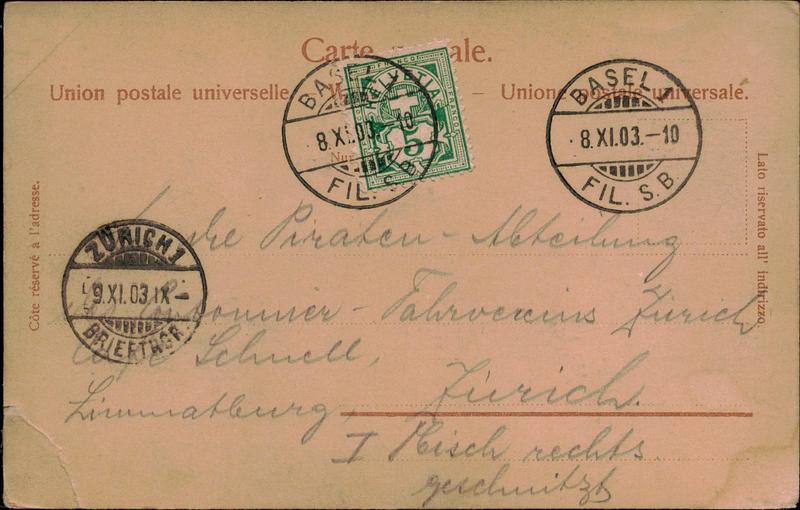 Carte postale.
Union postale universelle. – Unione postale universale.
Nur
HELVETIA
FRANCO
5
BASEL 1
8.XI.03.–10
FIL. S.B.
BASEL 1
8.XI.03.–10
FIL. S.B.
Côté réservé à l'adresse.
Lato riservato all' indirizzo.
ZÜRICH 1
9.XI.03.IX–
BRIEFTRGR.
Piraten-Abteilung
Fahrvereins Zürich
Schnell,
Limmatburg, Zürich.
I Tisch rechts
geschnitzt